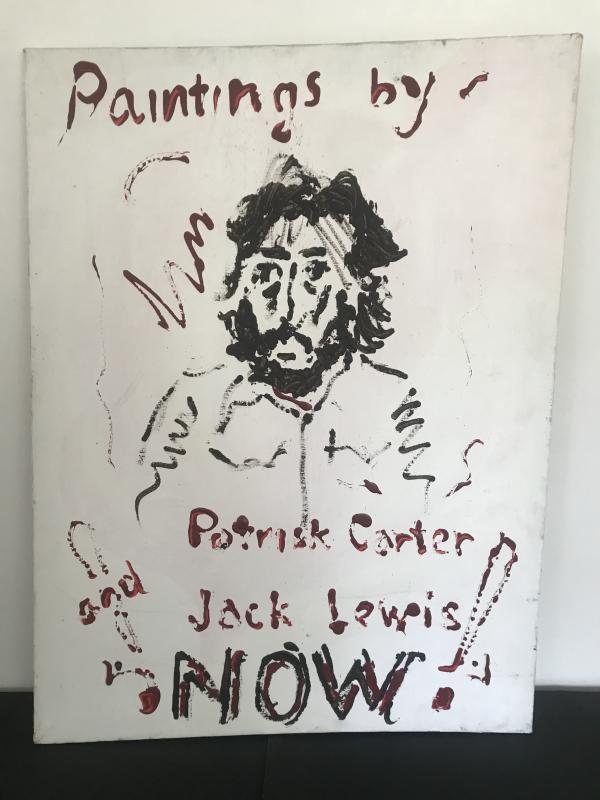 Paintings by
Patrick Carter
and
Jack Lewis
NOW!